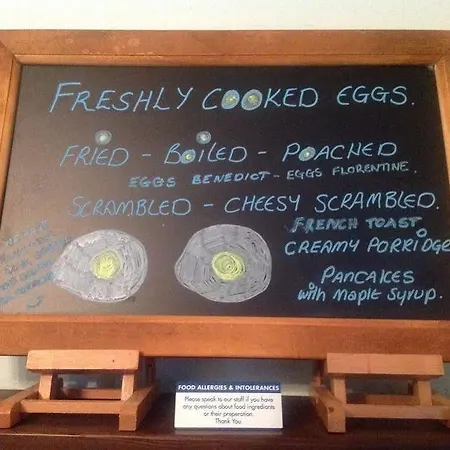 FRESHLY COOKED EGGS.
FRIED - BOILED - POACHED
EGGS BENEDICT - EGGS FLORENTINE.
SCRAMBLED - CHEESY SCRAMBLED.
FRENCH TOAST
CREAMY PORRIDGE
PANCAKES
with Maple Syrup.
FOOD ALLERGIES & INTOLERANCES
Please speak to our staff if you have
any questions about food ingredients
or their preperation.
Thank You